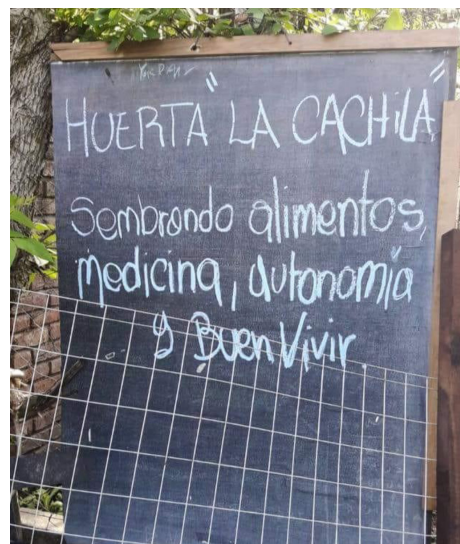 HUERTA "LA CACHiLA"
Sembrando alimentos,
Medicina, autonomía
y Buen Vivir